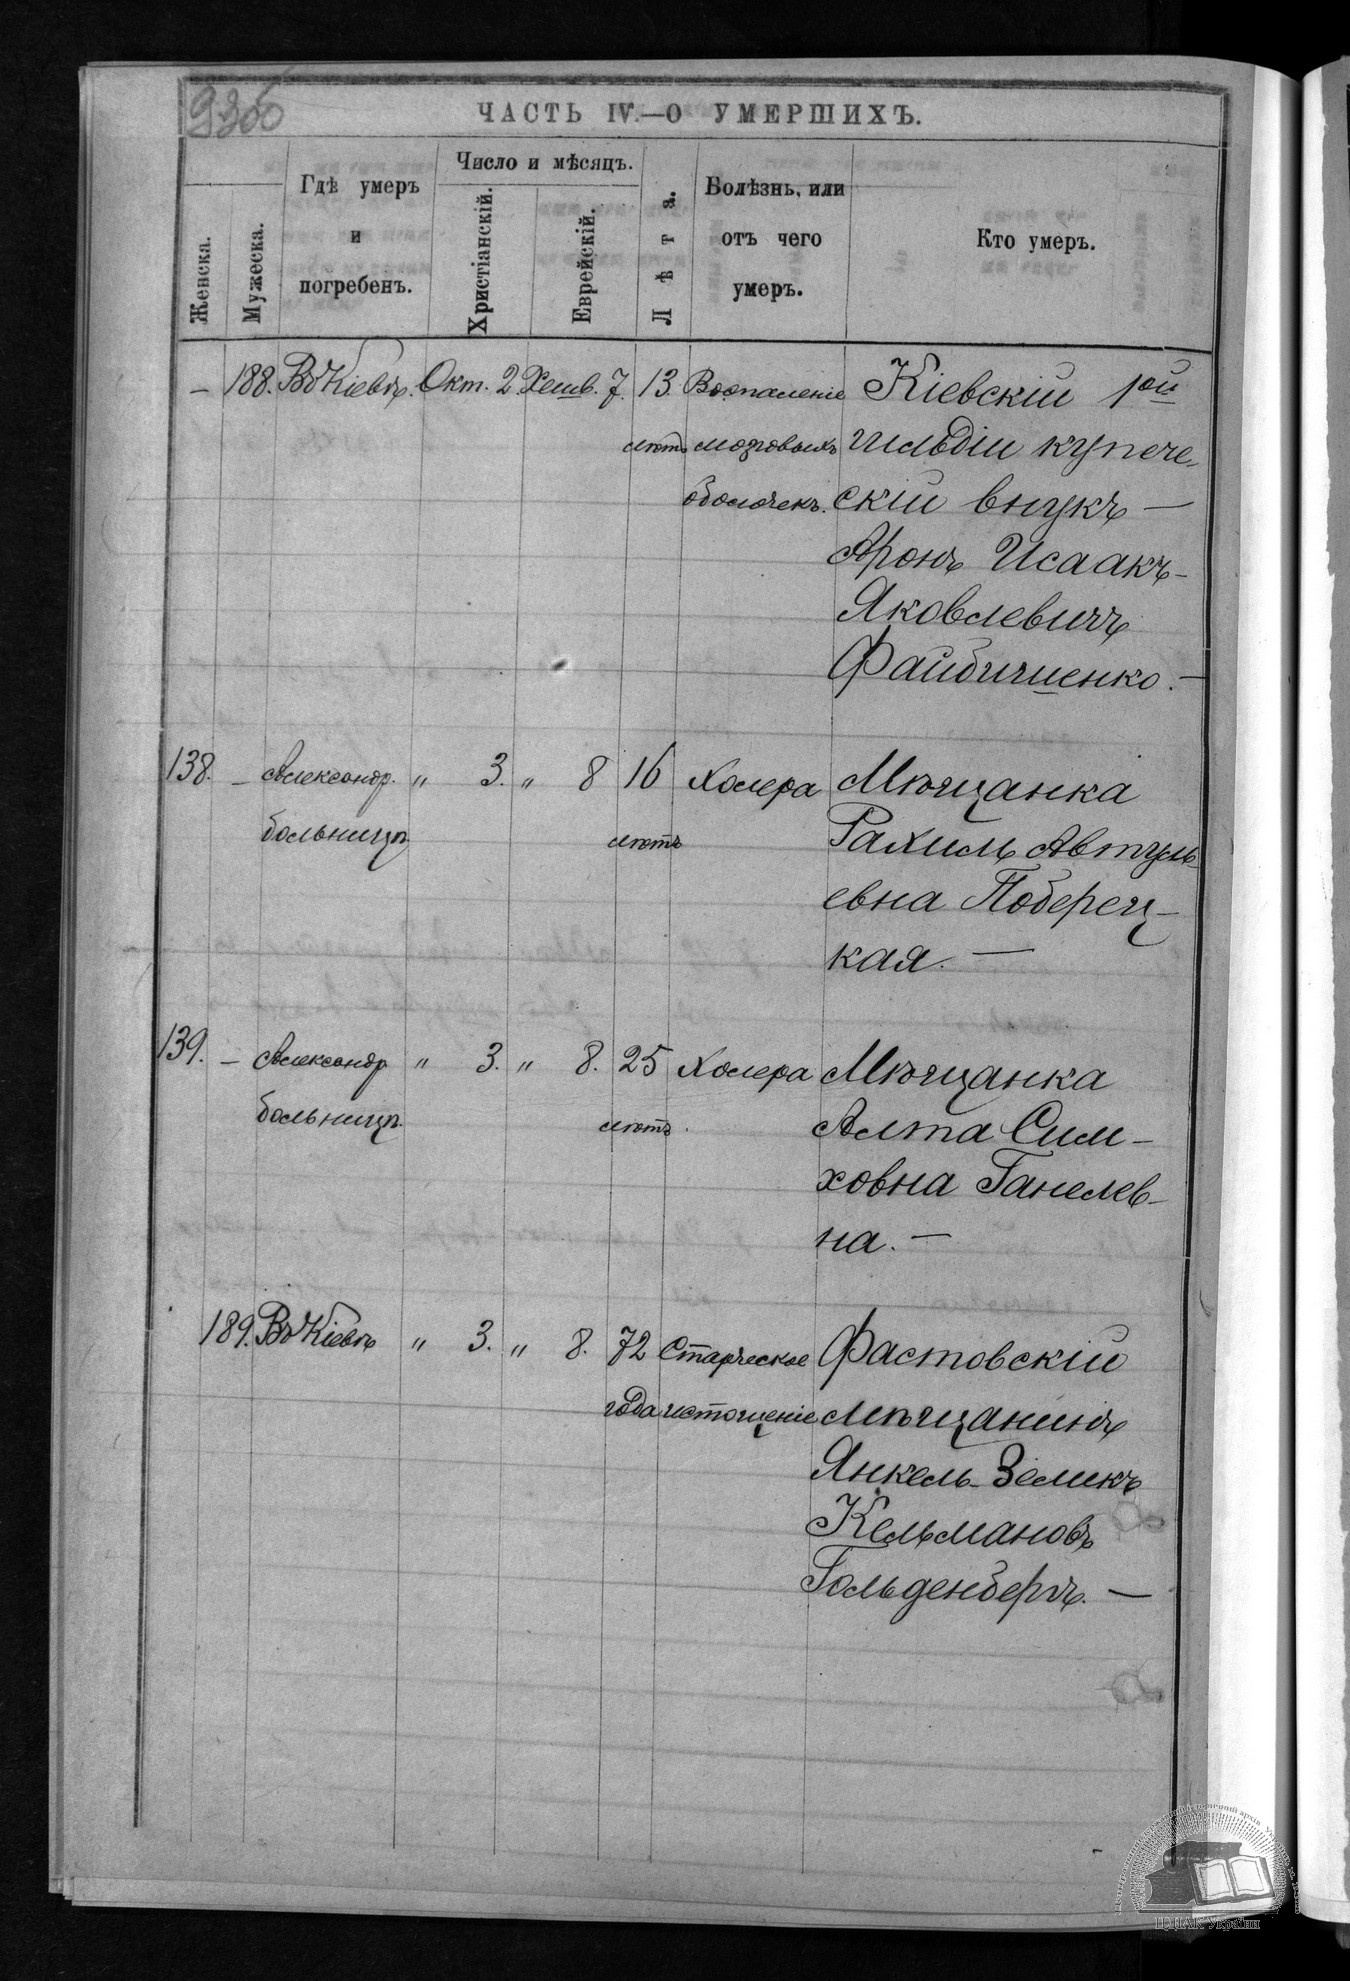 ЧАСТЬ IV.—О УМЕРШИХЪ.
Женска.
Мужеска.
Гдѣ умеръ
и
погребенъ.
Число и мѣсяцъ.
Христіанскій.
Еврейскій.
Лѣта.
Болѣзнь, или
отъ чего
умеръ.
Кто умеръ.
— 188. Въ Кіевѣ. Окт. 2. Хешв. 7. 13 Воспаленіе Кіевскій 1ой
лѣтъ мозговыхъ гильдіи купече-
оболочекъ. скій внукъ —
Аронъ Исаакъ-
Яковлевичъ
Файбишенко. —
138. — Александр. „ 3. „ 8 16 Холера Мѣщанка
больницѣ лѣтъ Рахиль Автуль-
евна Поберец-
кая. —
139. — Александр. „ 3. „ 8. 25 Холера Мѣщанка
больницѣ. лѣтъ. Алта Сим-
ховна Ганелев-
на. —
189. Въ Кіевѣ „ 3. „ 8. 72 Старческое Фастовскій
года истощеніе мѣщанинъ
Янкель-Зеликъ
Кельмановъ
Гольденбергъ. —
ЦДІАК України